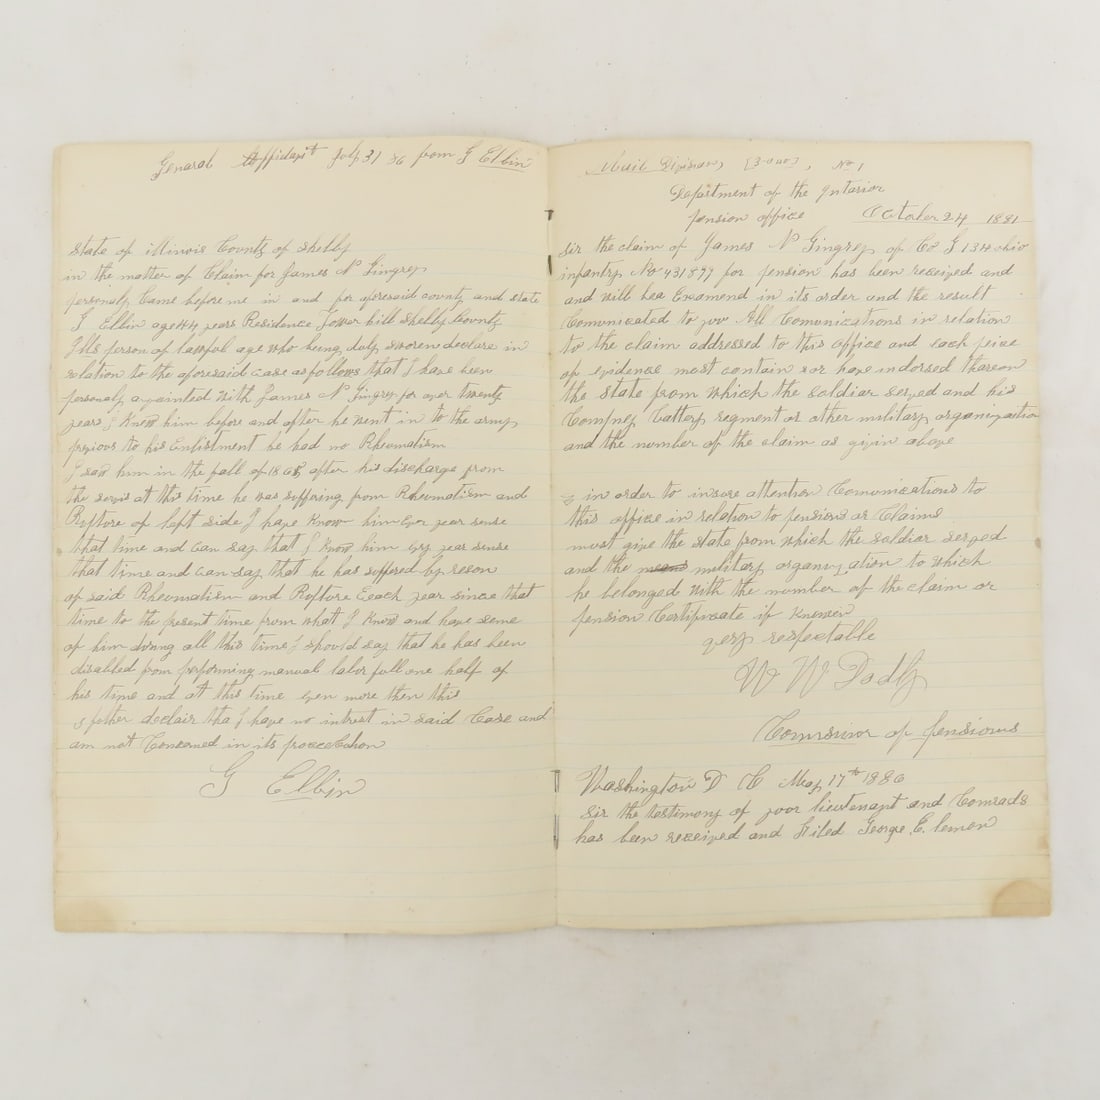 Genarol Affidavit July 31 86 from G Elbin
State of illinois County of Shelby
in the matter of Claim for James N Gingrey
personaly Came before me in and for aforesaid county and state
G Elbin age 44 years Residence Tower hill Shelby County
Ills person of lawful age who being duly sworen declare in
relation to the aforesaid case as follows that I have been
personaly aquainted with James N Gingrey for over twenty
years I Know him before and after he went in to the army
previous to his Enlistment he had no Rheumatism
I saw him in the fall of after his discharge from
the servis at this time he was suffering from Rheumatism and
Rupture of left side I have Know him Evr year sense
that time and can say that I Know him Evry year sense
that time and can say that he has suffered by reson
of said Rheumatism and Rupture Eeach year since that
time to the present time from what I Know and have seme
of him during all this time I should say that he has been
disabled from performing manual labor full one half of
his time and at this time even more then this
I father declair tha I have no intrest in said Case and
am not Concerned in its
G Elbin
Mail Division, No 1
Department of the Interior
pension office October 24 1881
Sir the claim of James N Gingrey of Co G 134 ohio
infantry No 431877 for pension has been received and
and will bea Examend in its order and the result
Comunicated to you All Comunications in relation
to the claim addressed to this office and each peice
of evidence must contain or have indorsed thareon
the state from which the soldiar served and his
Compney Battery regment or other military organization
and the number of the claim as givin above
in order to insure attention Comunications to
this office in relation to pensions or Claims
must give the state from which the soldiar served
and the military organization to which
he belonged with the number of the claim or
pension Certificate if Knowen
very respectable
W W Dudly
of pensions
Washington D C May 17th 1886
Sir the testimony of your lieutenant and Comrads
has been received and filed George E. lemon